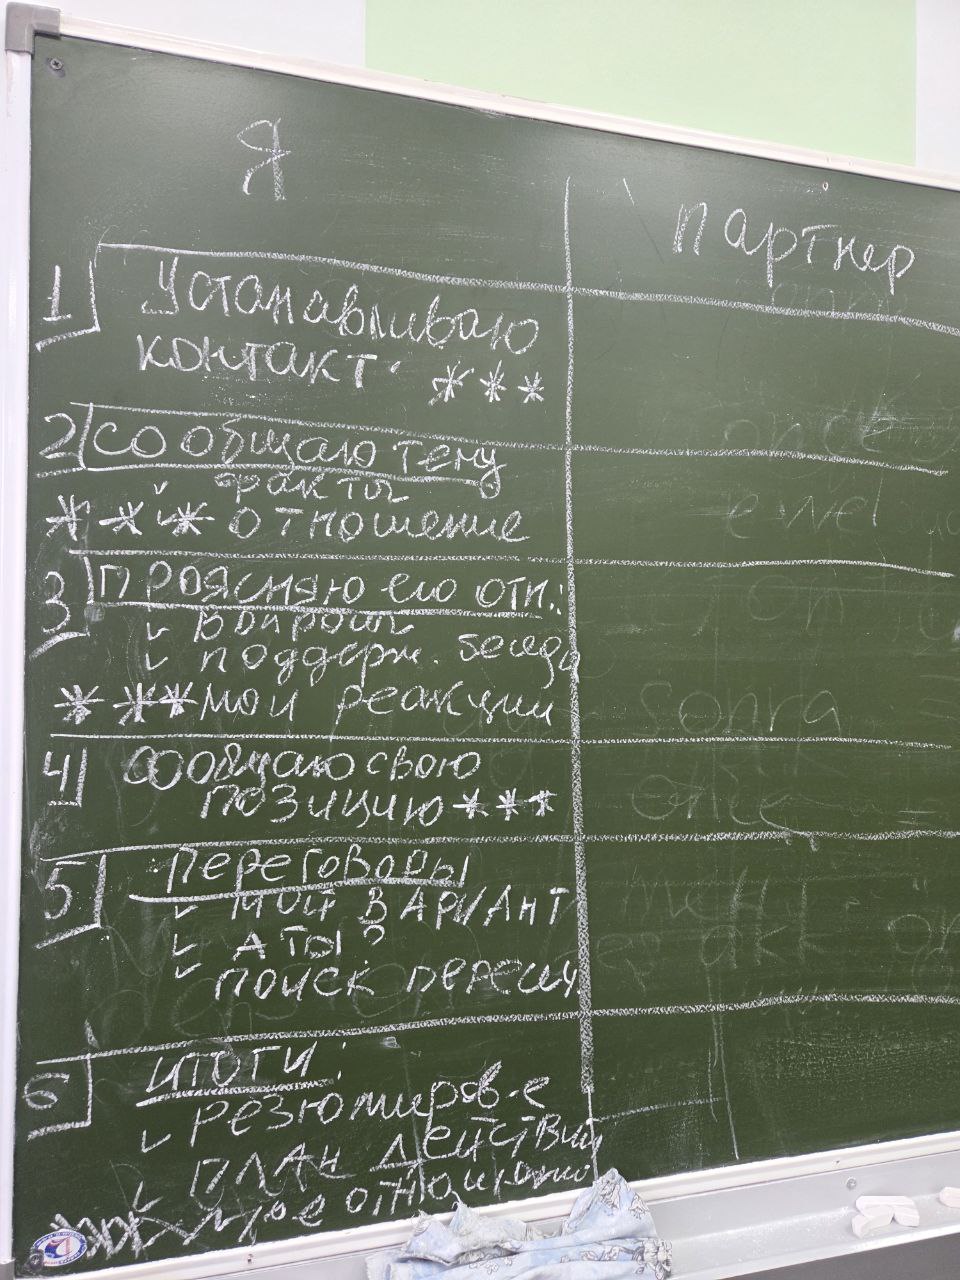 Я
партнер
1 Устанавливаю
контакт. ***
2 сообщаю тему
✓ факты
*** ✓ отношение
3 Проясняю его отн.:
✓ вопросы
✓ поддерж. беседа
*** мои реакции
4 сообщаю свою
позицию ***
5 переговоры
✓ мой вариант
✓ А ты?
✓ поиск пересеч
6 итоги:
✓ резюмиров-е
✓ план действий
*** мое отношение
sonra